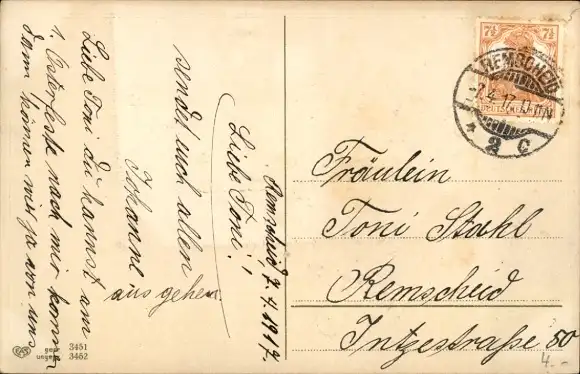 Remscheid 7.4.1917.
Liebe Toni!
Liebe Toni du kannst am
1. Osterfeste nach mir kommen
dann können mir ja von uns
aus gehen
sendet euch allen
Johanne
Fräulein
Toni Stahl
Remscheid
Intzestraße 50
7½ 7½
REMSCHEID
7.4.17.
* 2 c
EAS
3451
3452
4.-